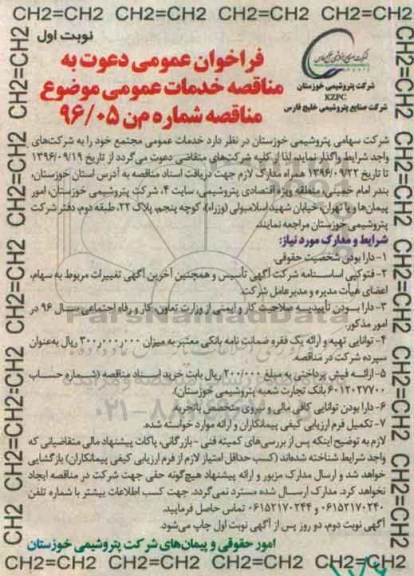 CH2=CH2 CH2=CH2 CH2=CH2 CH2=CH2 CH2=CH2
نوبت اول
فراخوان عمومی دعوت به
مناقصه خدمات عمومی موضوع
مناقصه شماره م‌ن ۹۶/۰۵
شرکت پتروشیمی خوزستان
KZPC
شرکت صنایع پتروشیمی خلیج فارس
شرکت سهامی پتروشیمی خوزستان در نظر دارد خدمات عمومی مجتمع خود را به شرکت‌های
واجد شرایط واگذار نماید، لذا از کلیه شرکت‌های متقاضی دعوت می‌گردد از تاریخ ۱۳۹۶/۰۹/۱۹
تا تاریخ ۱۳۹۶/۰۹/۲۲ همراه مدارک لازم جهت دریافت اسناد مناقصه به آدرس استان خوزستان،
بندر امام خمینی، منطقه ویژه اقتصادی پتروشیمی، سایت ۴، شرکت پتروشیمی خوزستان، امور
پیمان‌ها و یا تهران، خیابان شهید اسلامبولی (وزراء)، کوچه پنجم، پلاک ۲۲، طبقه دوم، دفتر شرکت
پتروشیمی خوزستان مراجعه نمایند.
شرایط و مدارک مورد نیاز:
۱- دارا بودن شخصیت حقوقی.
۲- فتوکپی اساسنامه شرکت آگهی تأسیس و همچنین آخرین آگهی تغییرات مربوط به سهام،
اعضای هیأت مدیره و مدیرعامل شرکت.
۳- دارا بودن تأییدیه صلاحیت کار و ایمنی از وزارت تعاون، کار و رفاه اجتماعی سال ۹۶ در
امور مذکور.
۴- توانایی تهیه و ارائه یک فقره ضمانت نامه بانکی معتبر به میزان ۳۰۰٫۰۰۰٫۰۰۰ ریال به‌عنوان
سپرده شرکت در مناقصه.
۵- ارائه فیش پرداختی به مبلغ ۲۰۰/۰۰۰ ریال بابت خرید اسناد مناقصه (شماره حساب
۶۰۱۲۰۲۷۷۰۰ بانک تجارت شعبه پتروشیمی خوزستان).
۶- دارا بودن توانایی کافی مالی و نیروی متخصص باتجربه.
۷- تکمیل فرم ارزیابی کیفی پیمانکاران و ارائه موارد خواسته شده.
لازم به توضیح اینکه پس از بررسی‌های کمیته فنی - بازرگانی، پاکات پیشنهاد مالی متقاضیانی که
واجد شرایط شناخته شده‌اند (کسب حداقل امتیاز لازم از فرم ارزیابی کیفی پیمانکاران) بازگشایی
خواهد شد و ارسال مدارک مزبور و ارائه پیشنهاد هیچ‌گونه حقی جهت شرکت در مناقصه ایجاد
نخواهد کرد. مدارک ارسال شده مسترد نمی‌گردد. جهت کسب اطلاعات بیشتر با شماره تلفن
۰۶۱۵۲۱۷۰۲۴۰ و ۰۶۱۵۲۱۷۰۲۴۴ تماس حاصل فرمایید.
آگهی نوبت دوم، دو روز پس از آگهی نوبت اول چاپ می‌شود.
امور حقوقی و پیمان‌های شرکت پتروشیمی خوزستان
CH2=CH2 CH2=CH2 CH2=CH2 CH2=CH2 CH2=CH2
ParsNamadData